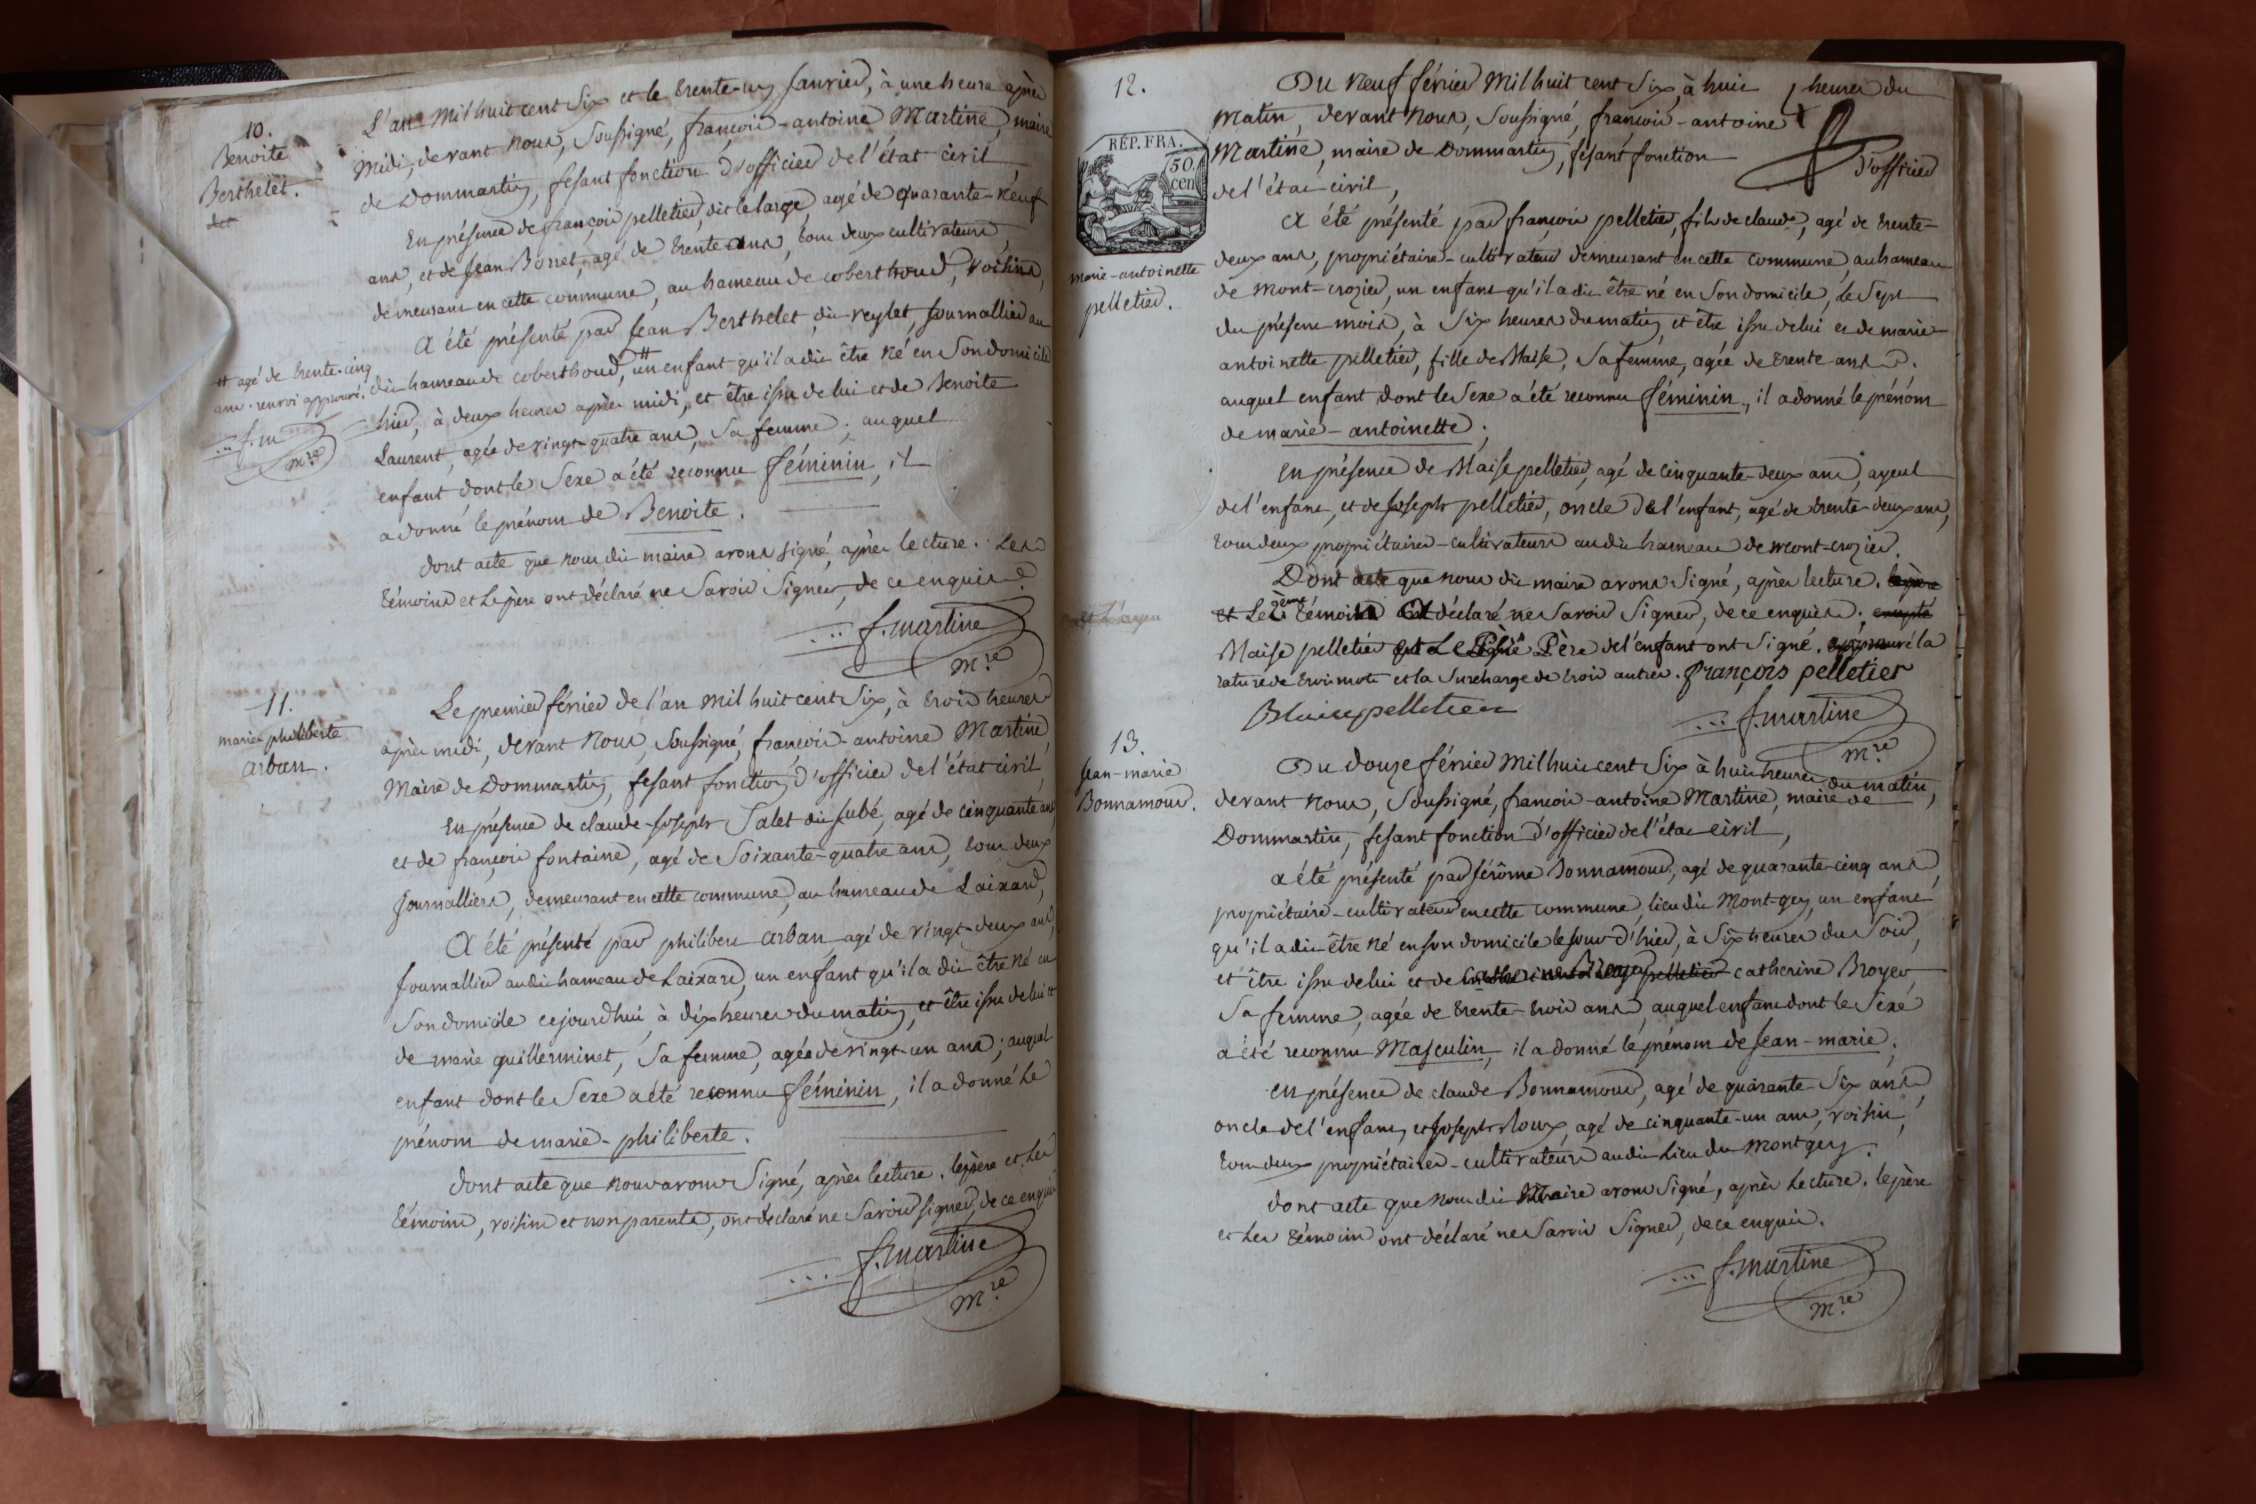 10.
Benoite
Berthelet.
L'an Mil huit cent Six et le trente-un Janvier, à une heure après
Midi, devant Nous, Soussigné, françois-antoine Martine, maire
de Dommartin, fesant fonction d'officier de l'état civil
En présence de françois pelletier, dit le large, agé de quarante-neuf
ans, et de Jean Borret, agé de trente ans, tous deux cultivateurs,
demeurant en cette commune, au hameau de coberthoud, voisins,
A été présenté par Jean Berthelet, dit veylet, Journallier au
dit hameau de coberthoud, # un enfant qu'il a dit être né en Son domicile
# agé de trente-cinq
ans. renvoi approuvé.
f. m
m.re
hier, à deux heures après midi, et être issu de lui et de Benoite
Laurent, agée de vingt-quatre ans, Sa femme; auquel
enfant dont le Sexe a été reconnu féminin, il
a donné le prénom de Benoite.
dont acte que nous dit maire avons signé, après lecture. Les
témoins et le père ont déclaré ne Savoir Signer, de ce enquis
f. martine
m.re
11.
marie philiberte
arban.
Le premier février de l'an Mil huit cent Six, à trois heures
après midi, devant Nous, Soussigné, françois-antoine Martine
Maire de Dommartin, fesant fonction d'officier de l'état civil,
En présence de claude-Joseph Salet dit Jubé, agé de cinquante ans
et de françois fontaine, agé de Soixante-quatre ans, tous deux
Journalliers, demeurant en cette commune, au hameau de Laixard,
A été présenté par philibert arban agé de vingt-deux ans,
Journallier au dit hameau de Laixard, un enfant qu'il a dit être né en
Son domicile cejourd'hui à dix heures du matin, et être issu de lui et
de marie guillerminet, Sa femme, agée de vingt-un ans; auquel
enfant dont le Sexe a été reconnu féminin, il a donné Le
prénom de marie-philiberte.
dont acte que nous avons Signé, après lecture. le père et les
témoins, voisins et non parents, ont déclaré ne Savoir signer, de ce enquis
f. martine
m.re
12.
RÉP. FRA.
50.
cen
marie-antoinette
pelletier.
Du Neuf février Mil huit cent Six, à huit heures du
Matin, devant Nous, Soussigné, françois-antoine
Martine, maire de Dommartin, fesant fonction d'officier
de l'état civil,
A été présenté par françois pelletier, fils de claude, agé de trente-
deux ans, propriétaire-cultivateur demeurant en cette commune, au hameau
de Mont-crozier, un enfant qu'il a dit être né en Son domicile, le Sept
du présent mois, à Six heures du matin et être issu de lui et de marie
antoinette pelletier, fille de Blaise, Sa femme, agée de trente ans.
auquel enfant dont le Sexe a été reconnu féminin, il a donné le prénom
de marie-antoinette;
en présence de Blaise pelletier, agé de cinquante-deux ans, ayeul
de l'enfant, et de Joseph pelletier, oncle de l'enfant, agé de trente-deux ans,
tous deux propriétaires-cultivateurs au dit hameau de Mont-crozier.
Dont acte que nous dit maire avons Signé, après lecture. le père
et Le 2ème témoin a déclaré ne Savoir Signer, de ce enquis. excepté
Blaise pelletier et Le Père de l'enfant ont Signé. approuvé la
rature de trois mots et la Surcharge de trois autres. françois pelletier
Blaise pelletier
f. martine
m.re
13.
Jean-marie
Bonnamour.
Du douze février Mil huit cent Six à huit heures du matin,
devant Nous, Soussigné, françois-antoine Martine, maire de
Dommartin, fesant fonction d'officier de l'état civil,
a été présenté par Jérôme Bonnamour, agé de quarante-cinq ans,
propriétaire-cultivateur en cette commune, lieu dit Mont-gey, un enfant
qu'il a dit être né en son domicile le jour d'hier, à Six heures du Soir,
et être issu de lui et de catherine Broyer
Sa femme, agée de trente-trois ans, auquel enfant dont le Sexe
a été reconnu Masculin, il a donné le prénom de Jean-marie.
en présence de claude Bonnamour, agé de quarante-Six ans
oncle de l'enfant, et Joseph Roux, agé de cinquante-un ans, voisin,
tous deux propriétaires-cultivateurs au dit Lieu du Montgey.
dont acte que nous dit Maire avons Signé, après Lecture. le père
et les témoins ont déclaré ne Savoir Signer, de ce enquis.
f. martine
m.re